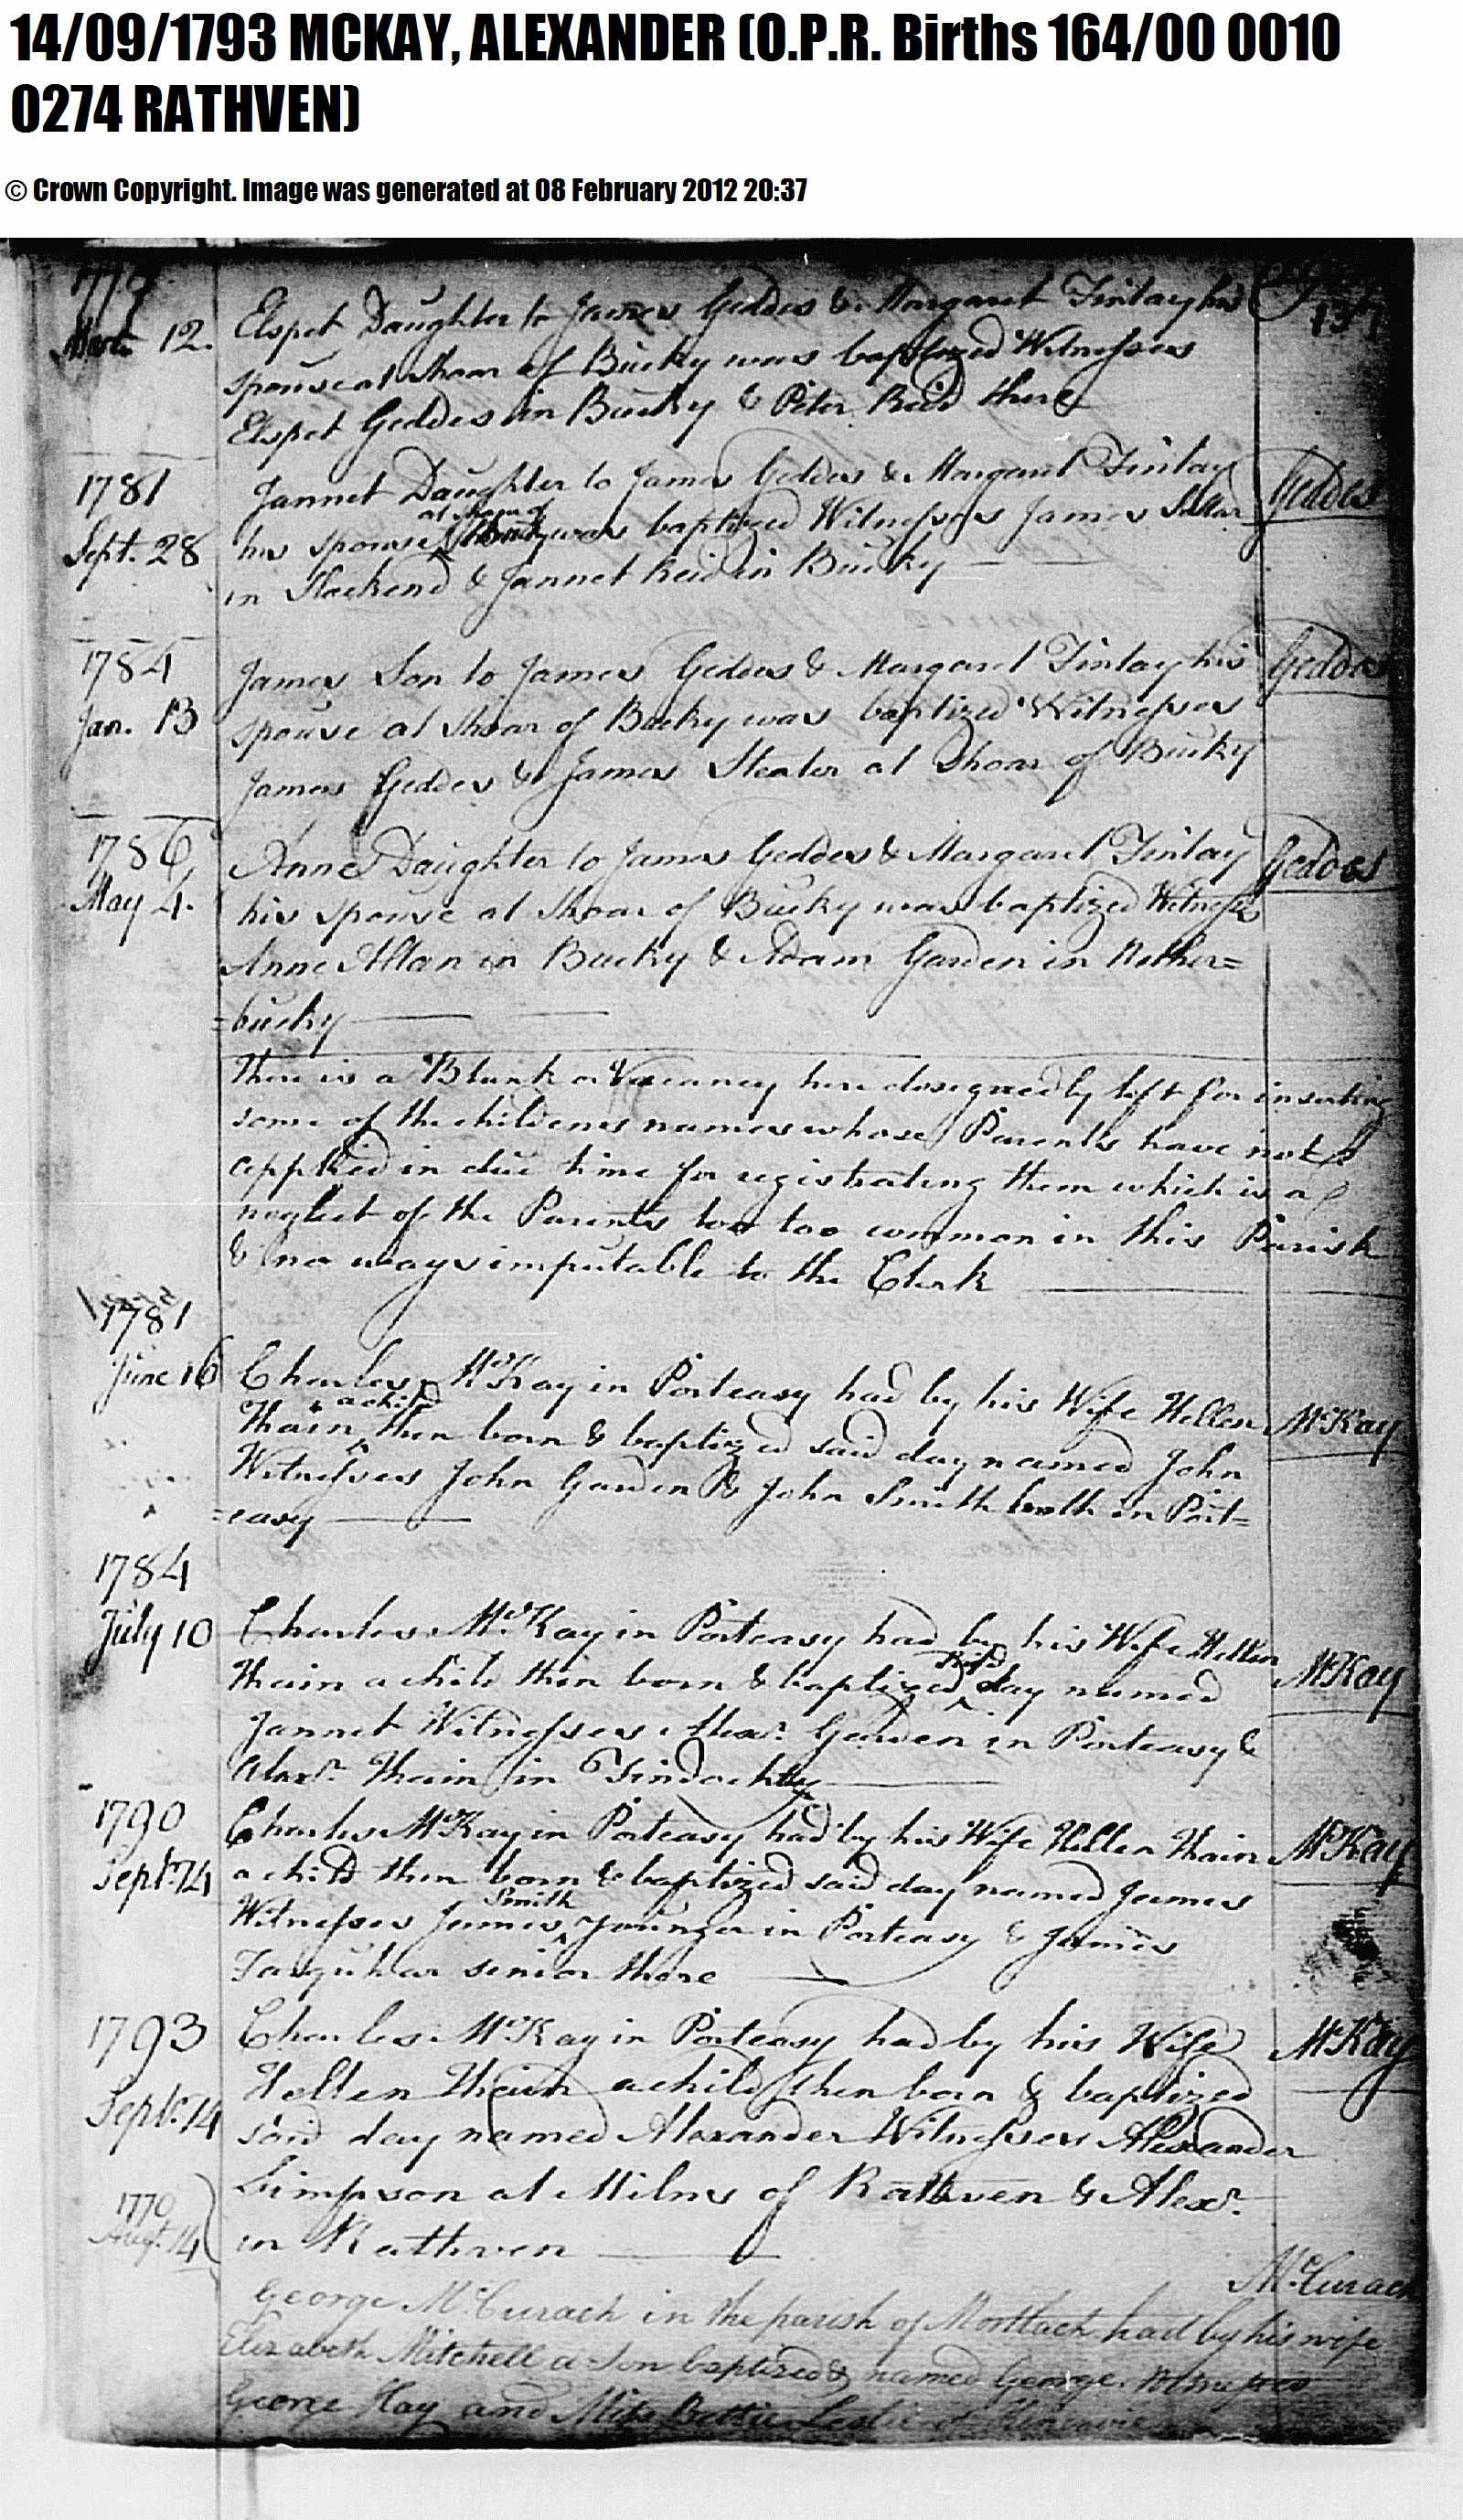 14/09/1793 MCKAY, ALEXANDER (O.P.R. Births 164/00 0010
0274 RATHVEN)
© Crown Copyright. Image was generated at 08 February 2012 20:37
1779
March 12.
Elspet Daughter to James Geddes & Margaret Finlay his
spouse at Shoar of Bucky was baptized Witnesses
Elspet Geddes in Bucky & Peter Reid there
137
1781
Sept. 28
Jannet Daughter to James Geddes & Margaret Finlay
at Shoar of
his spouse Bucky was baptized Witnesses James
in Slackend & Jannet Reid in Bucky
Geddes
1784
Jan. 13
James Son to James Geddes & Margaret Finlay his
spouse at Shoar of Bucky was baptized Witnesses
James Geddes & James Slealer at Shoar of Bucky
Geddes
1786
May 4.
Anne Daughter to James Geddes & Margaret Finlay
his spouse at Shoar of Bucky was baptized Witness
Anne Allan in Bucky & Adam Garden in Nether=
=bucky
Geddes
There is a Blank or Vacancy here designedly left for inserting
some of the childrens names whose Parents have not
applied in due time for registrating them which is a
neglect of the Parents too too common in this Parish
& no ways imputable to the Clerk
1781
June 16
Charles McKay in Porteasy had by his Wife Hellen
a child
Thain then born & baptized said day named John
Witnesses John Garden & John Smith both in Port=
=easy
McKay
1784
July 10
Charles McKay in Porteasy had by his Wife Hellen
said
Thain a child then born & baptized day named
Jannet Witnesses Alexr. Garden in Porteasy &
Alexr. Thain in Findochtty
McKay
1790
Septr. 14
Charles McKay in Porteasy had by his Wife Hellen Thain
a child then born & baptized said day named James
Smith
Witnesses James younger in Porteasy & James
Farquhar senior there
McKay
1793
Septr. 14
Charles McKay in Porteasy had by his Wife
Hellen Thain a child then born & baptized
said day named Alexander Witnesses Alexander
Simpson at Milns of Rathven & Alexr.
in Rathven
McKay
1770
Augt. 14
McCurach
George McCurach in the parish of Mortlach had by his wife
Elizabeth Mitchell a Son baptized & named George. Witnesses
George Hay and Miss Bettie Leslie